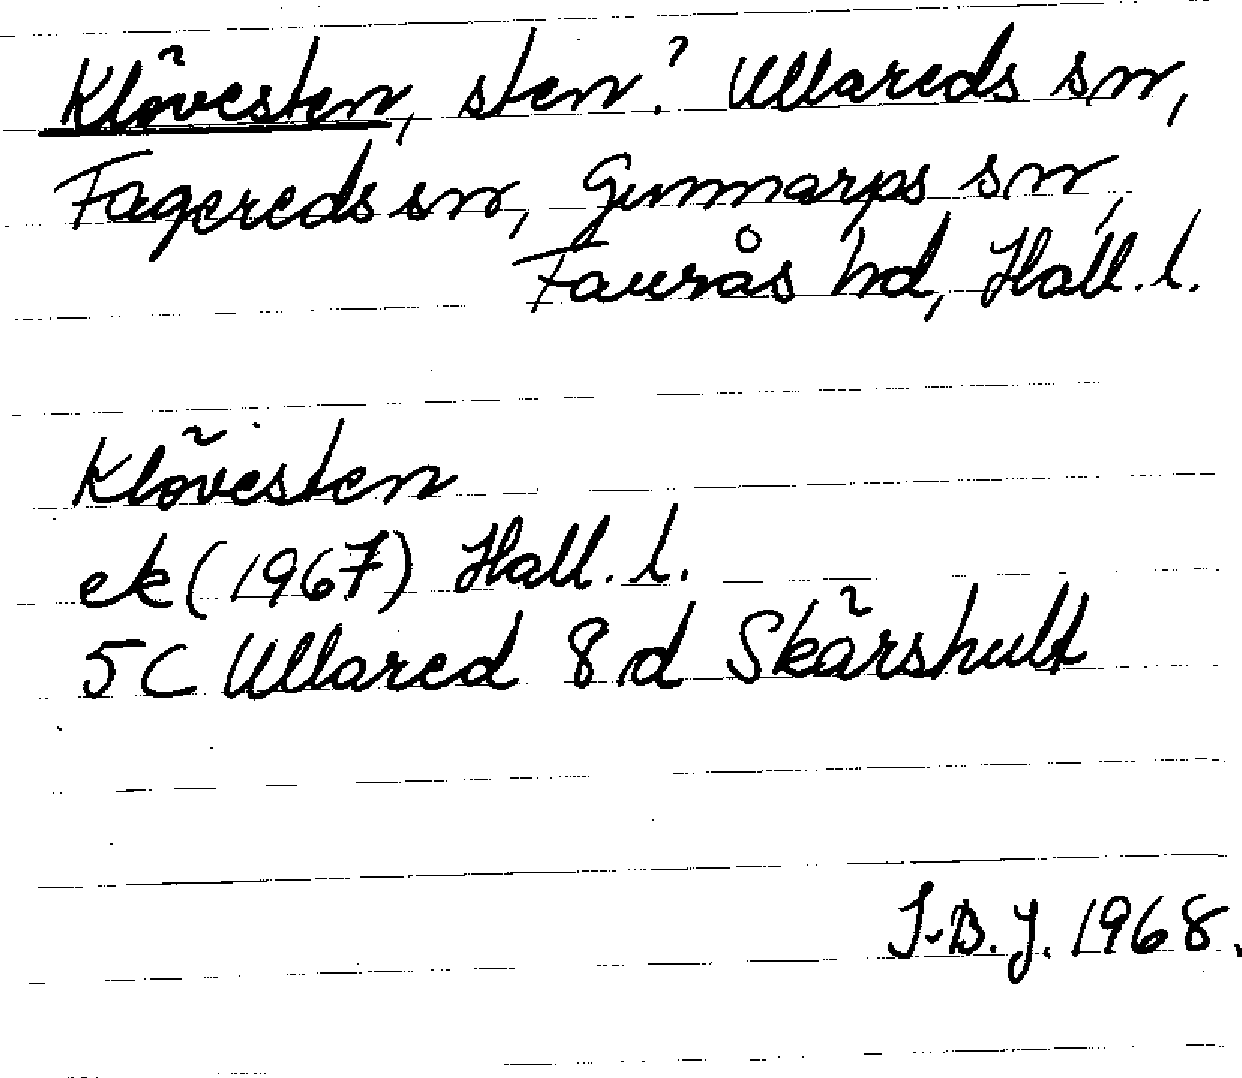 Klövesten, sten? Ullareds sn,
Fagereds sn, Gunnarps sn,
Faurås hd, Hall. l.
Klövesten
ek (1967) Hall. l.
5C Ullared 8d Skärshult
I-B. J. 1968.